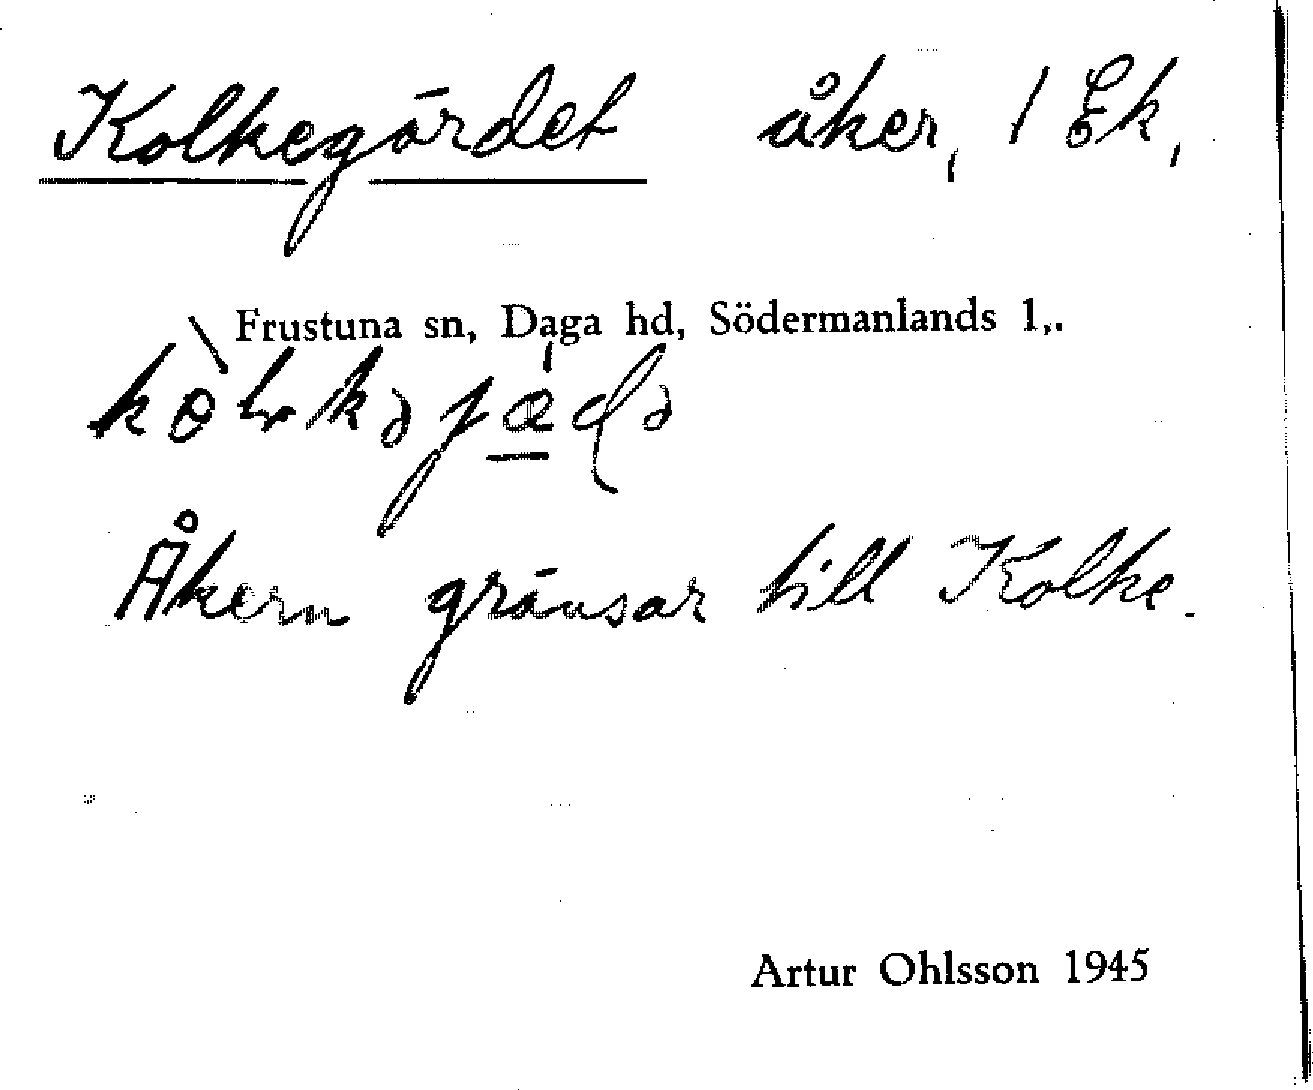 Kolkegärdet åker, 1 Ek,
Frustuna sn, Daga hd, Södermanlands l,.
Åkern gränsar till Kolke.
Artur Ohlsson 1945